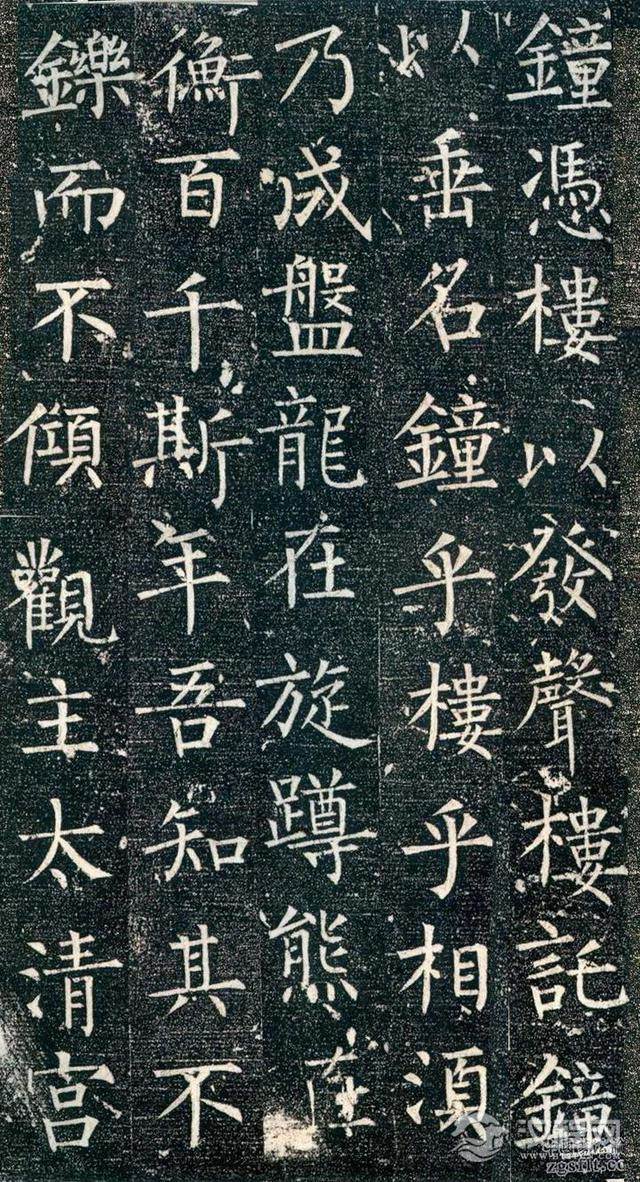 鐘憑樓以發聲樓託鐘
以垂名鐘乎樓乎相須
乃成盤龍在旋蹲熊在
衡百千斯年吾知其不
鑠而不傾觀主太清宮
zgsflt.cc